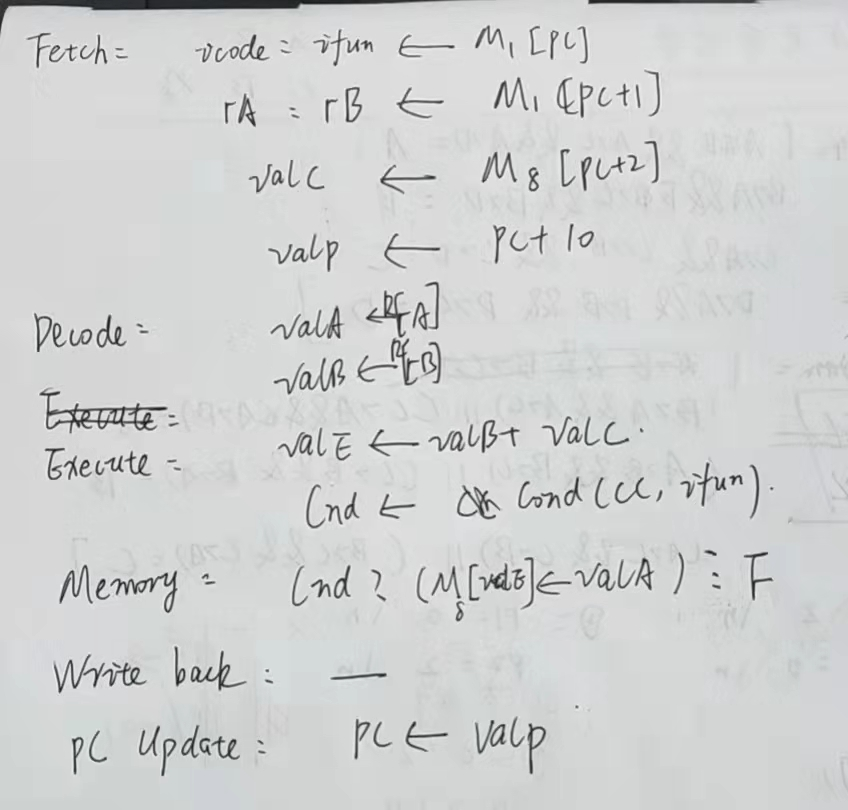 Fetch: icode : ifun ← M₁ [PC]
rA : rB ← M₁ [PC+1]
valC ← M₈ [PC+2]
valp ← PC+ 10
Decode: valA ← R[rA]
valB ← R[rB]
Execute:
Execute: valE ← valB+ valC.
Cnd ← Cond (CC, ifun).
Memory: Cnd ? (M₈[valE] ← valA) : F
Write back: —
PC Update: PC ← valp